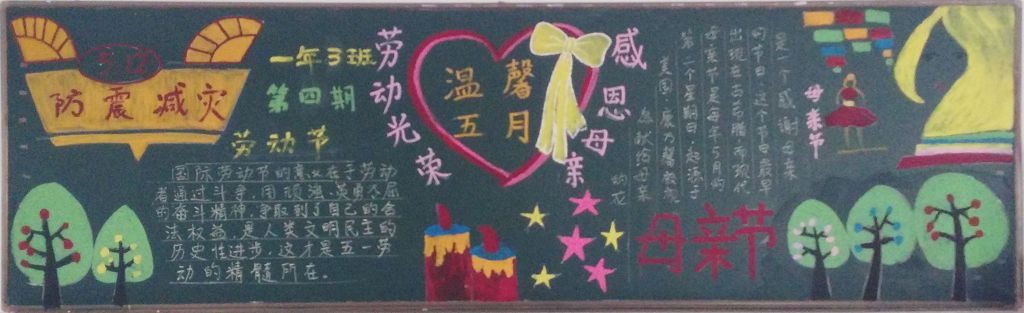 5.12
防震减灾
一年3班
第四期
劳动节
国际劳动节的意义在于劳动
者通过斗争,用顽强、英勇不屈
的奋斗精神,争取到了自己的合
法权益,是人类文明民主的
历史性进步,这才是五一劳
动的精髓所在。
劳动光荣
温馨
五月
感恩母亲
是一个感谢母亲
的节日,这个节日最早
出现在古希腊,而现代
母亲节是每年5月的
第二个星期日,起源于
美国,康乃馨
献给母亲
的花
母亲节
母亲节